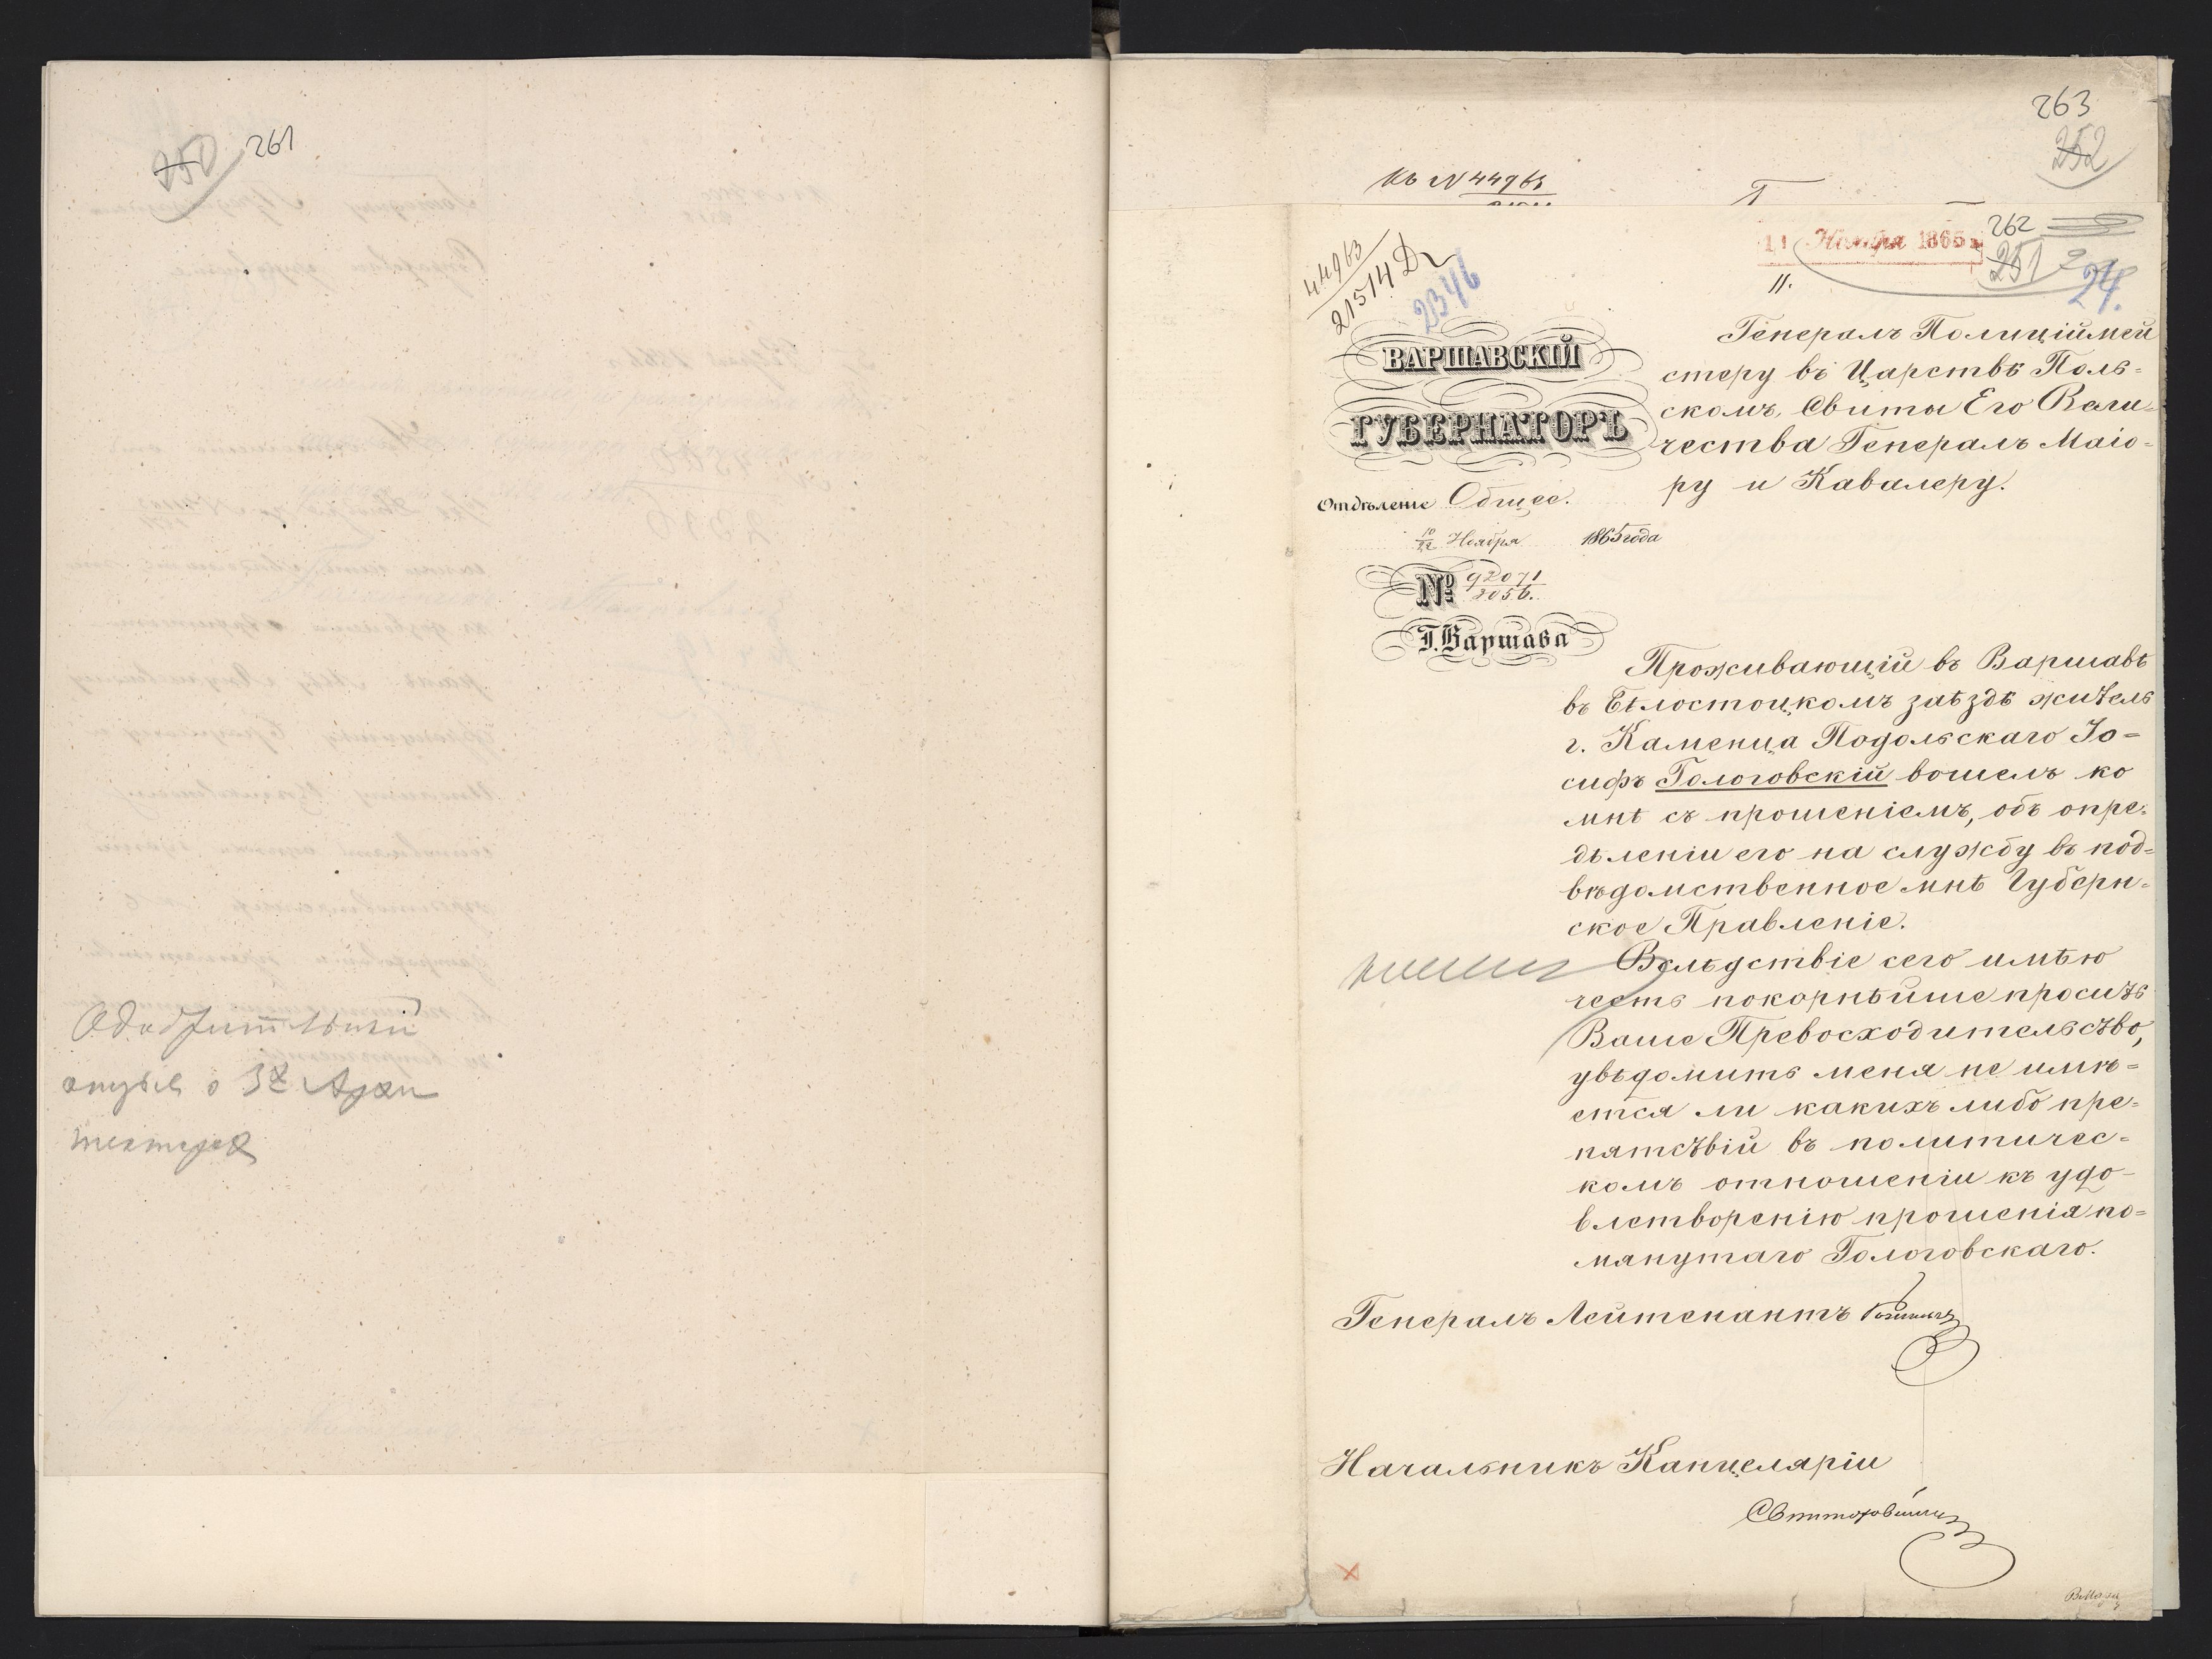 250 261
263
252
Къ № 44963
44963
21514 Д
2346
11 Ноября 1865
262
251
24.
11.
ВАРШАВСКІЙ
ГУБЕРНАТОРЪ
Отдѣленіе Общее.
10/22 Ноября 1865 года
№ 92071
2056.
Г. Варшава
Генералъ Полиціймей
стеру въ Царствѣ Поль=
скомъ, Свиты Его Вели=
чества Генералъ Маіо=
ру и Кавалеру.
Проживающій въ Варшавѣ
въ Бѣлостоцкомъ заѣздѣ житель
г. Каменца Подольскаго Іо=
сифъ Гологовскій вошелъ ко
мнѣ съ прошеніемъ, объ опре=
дѣленіи его на службу въ под=
вѣдомственное мнѣ Губерн=
ское Правленіе.
Вслѣдствіе сего имѣю
честь покорнѣйше просить
Ваше Превосходительство,
увѣдомить меня не имѣ=
ется ли какихъ либо пре=
пятствій въ политичес=
комъ отношеніи къ удо=
влетворенію прошенія по=
мянутаго Гологовскаго.
Генералъ Лейтенантъ
Начальникъ Канцеляріи